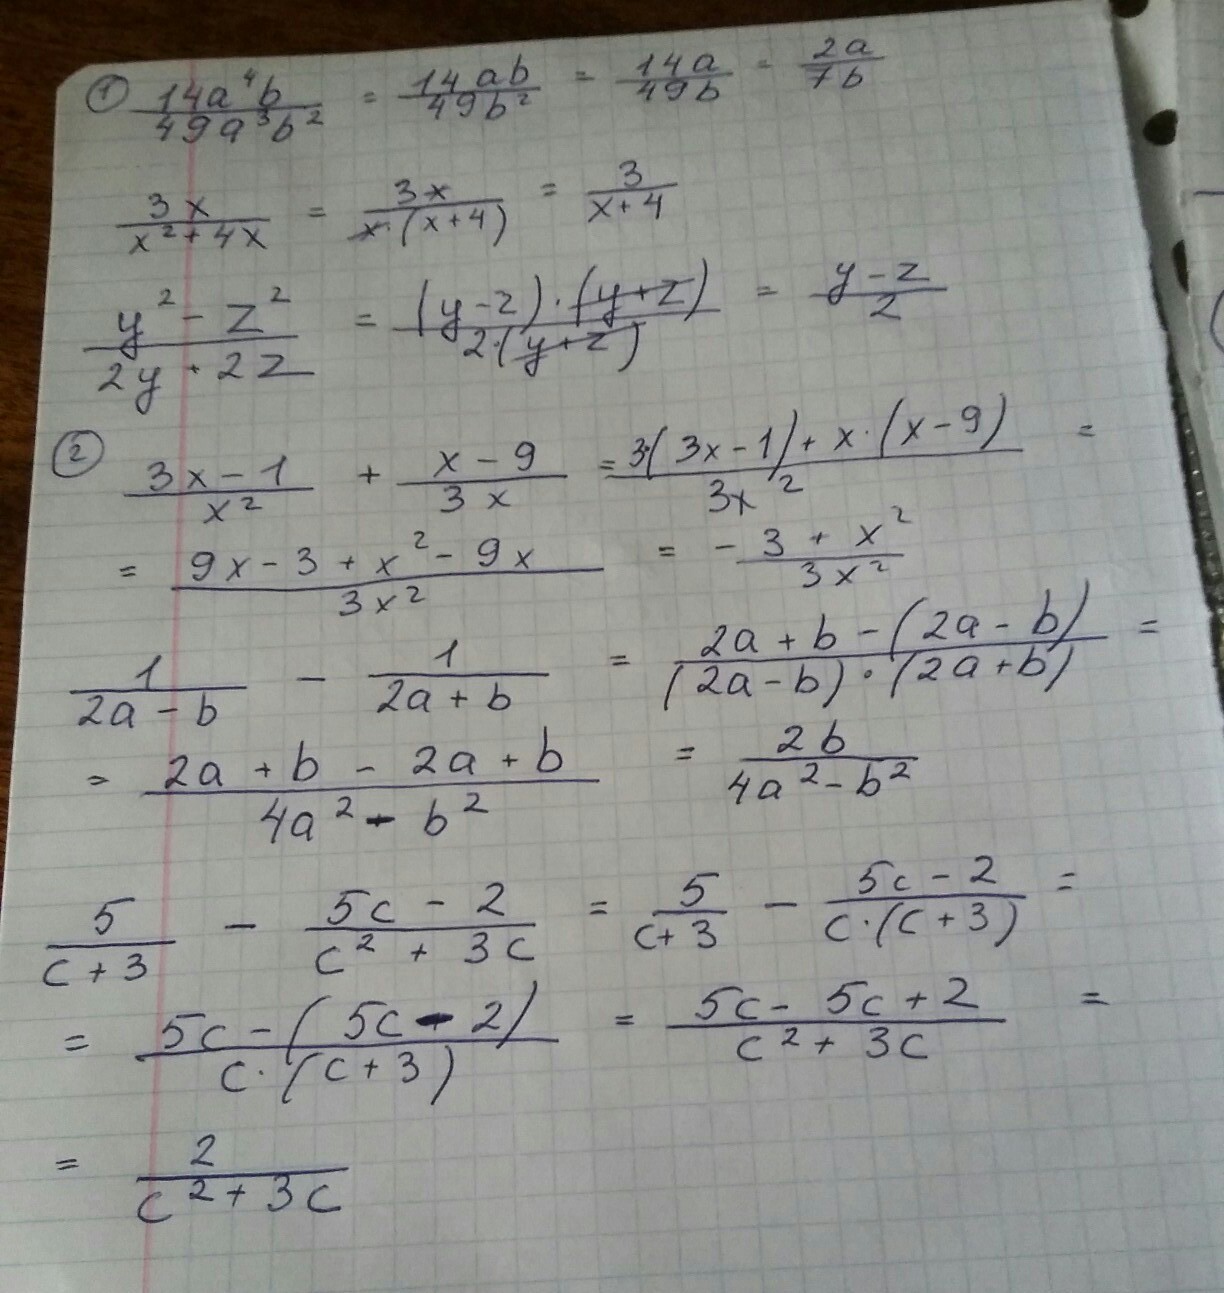 ① 14a⁴b/49a³b² = 14ab/49b² = 14a/49b = 2a/7b
3x/x²+4x = 3x/x·(x+4) = 3/x+4
y²-z²/2y+2z = (y-z)·(y+z)/2·(y+z) = y-z/2
② 3x-1/x² + x-9/3x = 3·(3x-1)+x·(x-9)/3x² =
= 9x-3+x²-9x/3x² = -3+x²/3x²
1/2a-b - 1/2a+b = 2a+b-(2a-b)/(2a-b)·(2a+b) =
= 2a+b-2a+b/4a²-b² = 2b/4a²-b²
5/c+3 - 5c-2/c²+3c = 5/c+3 - 5c-2/c·(c+3) =
= 5c-(5c-2)/c·(c+3) = 5c-5c+2/c²+3c =
= 2/c²+3c